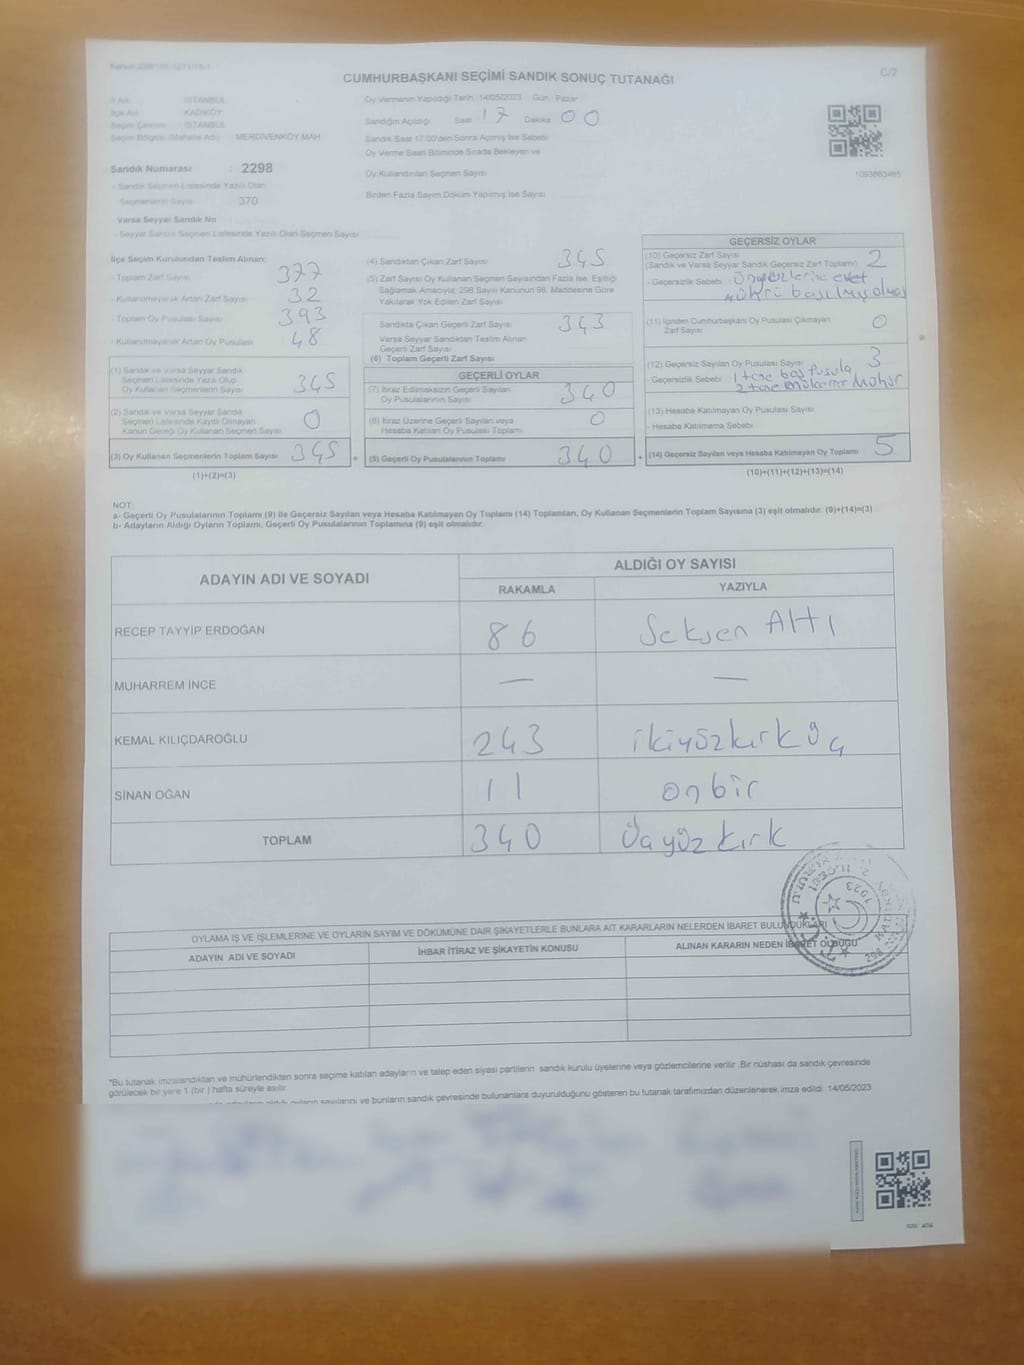 CUMHURBAŞKANI SEÇİMİ SANDIK SONUÇ TUTANAĞI
C/7
İl Adı : İSTANBUL
İlçe Adı : KADIKÖY
Seçim Çevresi : İSTANBUL
Seçim Bölgesi (Mahalle Adı) : MERDİVENKÖY MAH
Sandık Numarası : 2298
- Sandık Seçmen Listesinde Yazılı Olan
Seçmenlerin Sayısı 370
Varsa Seyyar Sandık No
- Seyyar Sandık Seçmen Listesinde Yazılı Olan Seçmen Sayısı
Oy Vermenin Yapıldığı Tarih : 14/05/2023 Gün : Pazar
Sandığın Açıldığı Saat 17 Dakika 00
Sandık Saat 17:00'den Sonra Açılmış İse Sebebi
Oy Verme Saati Bitiminde Sırada Bekleyen ve
Oy Kullandırılan Seçmen Sayısı
Birden Fazla Sayım Döküm Yapılmış İse Sayısı
1093663465
İlçe Seçim Kurulundan Teslim Alınan:
- Toplam Zarf Sayısı 377
- Kullanılmayarak Artan Zarf Sayısı 32
- Toplam Oy Pusulası Sayısı 393
- Kullanılmayarak Artan Oy Pusulası 48
(1) Sandık ve Varsa Seyyar Sandık
Seçmen Listesinde Yazılı Olup
Oy Kullanan Seçmenlerin Sayısı 345
(2) Sandık ve Varsa Seyyar Sandık
Seçmen Listesinde Kayıtlı Olmayan
Kanun Gereği Oy Kullanan Seçmen Sayısı 0
(3) Oy Kullanan Seçmenlerin Toplam Sayısı 345
(1)+(2)=(3)
(4) Sandıktan Çıkan Zarf Sayısı 345
(5) Zarf Sayısı Oy Kullanan Seçmen Sayısından Fazla İse, Eşitliği
Sağlamak Amacıyla, 298 Sayılı Kanunun 98. Maddesine Göre
Yakılarak Yok Edilen Zarf Sayısı
Sandıkta Çıkan Geçerli Zarf Sayısı 343
Varsa Seyyar Sandıktan Teslim Alınan
Geçerli Zarf Sayısı
(6) Toplam Geçerli Zarf Sayısı
GEÇERLİ OYLAR
(7) İtiraz Edilmeksizin Geçerli Sayılan
Oy Pusulalarının Sayısı 340
(8) İtiraz Üzerine Geçerli Sayılan veya
Hesaba Katılan Oy Pusulası Toplamı 0
(9) Geçerli Oy Pusulalarının Toplamı 340
GEÇERSİZ OYLAR
(10) Geçersiz Zarf Sayısı
(Sandık ve Varsa Seyyar Sandık Geçersiz Zarf Toplamı) 2
- Geçersizlik Sebebi : Ön yüzlerine evet
mührü basılmış olması
(11) İçinden Cumhurbaşkanı Oy Pusulası Çıkmayan
Zarf Sayısı 0
(12) Geçersiz Sayılan Oy Pusulası Sayısı 3
- Geçersizlik Sebebi 1 tane boş pusula
2 tane mükerrer Mühür
(13) Hesaba Katılmayan Oy Pusulası Sayısı
- Hesaba Katılmama Sebebi
(14) Geçersiz Sayılan veya Hesaba Katılmayan Oy Toplamı 5
(10)+(11)+(12)+(13)=(14)
NOT:
a- Geçerli Oy Pusulalarının Toplamı (9) ile Geçersiz Sayılan veya Hesaba Katılmayan Oy Toplamı (14) Toplamları, Oy Kullanan Seçmenlerin Toplam Sayısına (3) eşit olmalıdır. (9)+(14)=(3)
b- Adayların Aldığı Oyların Toplamı, Geçerli Oy Pusulalarının Toplamına (9) eşit olmalıdır.
ADAYIN ADI VE SOYADI
ALDIĞI OY SAYISI
RAKAMLA YAZIYLA
RECEP TAYYİP ERDOĞAN 86 Seksen Altı
MUHARREM İNCE — —
KEMAL KILIÇDAROĞLU 243 ikiyüzkırküç
SİNAN OĞAN 11 onbir
TOPLAM 340 Üçyüz kırk
OYLAMA İŞ VE İŞLEMLERİNE VE OYLARIN SAYIM VE DÖKÜMÜNE DAİR ŞİKAYETLERLE BUNLARA AİT KARARLARIN NELERDEN İBARET BULUNDUKLARI
ADAYIN ADI VE SOYADI İHBAR İTİRAZ VE ŞİKAYETİN KONUSU ALINAN KARARIN NEDEN İBARET OLDUĞU
1923
*Bu tutanak imzalandıktan ve mühürlendikten sonra seçime katılan adayların ve talep eden siyasi partilerin sandık kurulu üyelerine veya gözlemcilerine verilir. Bir nüshası da sandık çevresinde
görülecek bir yere 1 (bir) hafta süreyle asılır.
oyların sayılarını ve bunların sandık çevresinde bulunanlara duyurulduğunu gösteren bu tutanak tarafımızdan düzenlenerek imza edildi. 14/05/2023